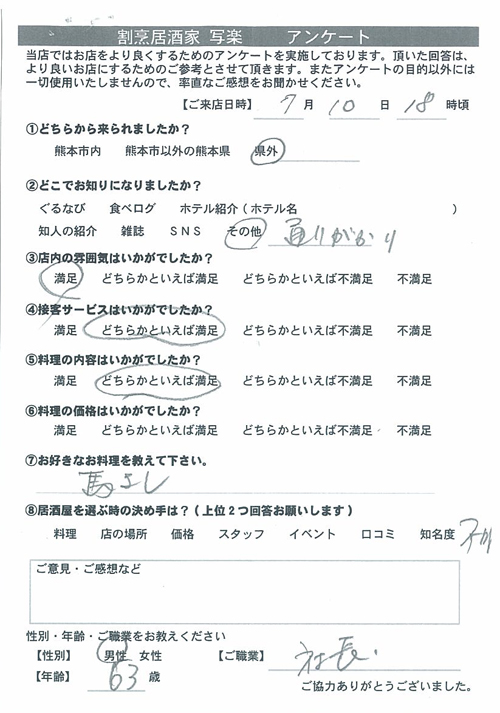 割烹居酒家 写楽 アンケート
当店ではお店をより良くするためのアンケートを実施しております。頂いた回答は、
より良いお店にするためのご参考とさせて頂きます。またアンケートの目的以外には
一切使用いたしませんので、率直なご感想をお聞かせください。
【ご来店日時】 7 月 10 日 18 時頃
①どちらから来られましたか？
熊本市内 熊本市以外の熊本県 県外
②どこでお知りになりましたか？
ぐるなび 食べログ ホテル紹介（ホテル名 ）
知人の紹介 雑誌 ＳＮＳ その他 通りがかり
③店内の雰囲気はいかがでしたか？
満足 どちらかといえば満足 どちらかといえば不満足 不満足
④接客サービスはいかがでしたか？
満足 どちらかといえば満足 どちらかといえば不満足 不満足
⑤料理の内容はいかがでしたか？
満足 どちらかといえば満足 どちらかといえば不満足 不満足
⑥料理の価格はいかがでしたか？
満足 どちらかといえば満足 どちらかといえば不満足 不満足
⑦お好きなお料理を教えて下さい。
馬さし
⑧居酒屋を選ぶ時の決め手は？（上位２つ回答お願いします）
料理 店の場所 価格 スタッフ イベント 口コミ 知名度
ご意見・ご感想など
性別・年齢・ご職業をお教えください
【性別】 男性 女性 【ご職業】 社長.
【年齢】 63 歳
ご協力ありがとうございました。